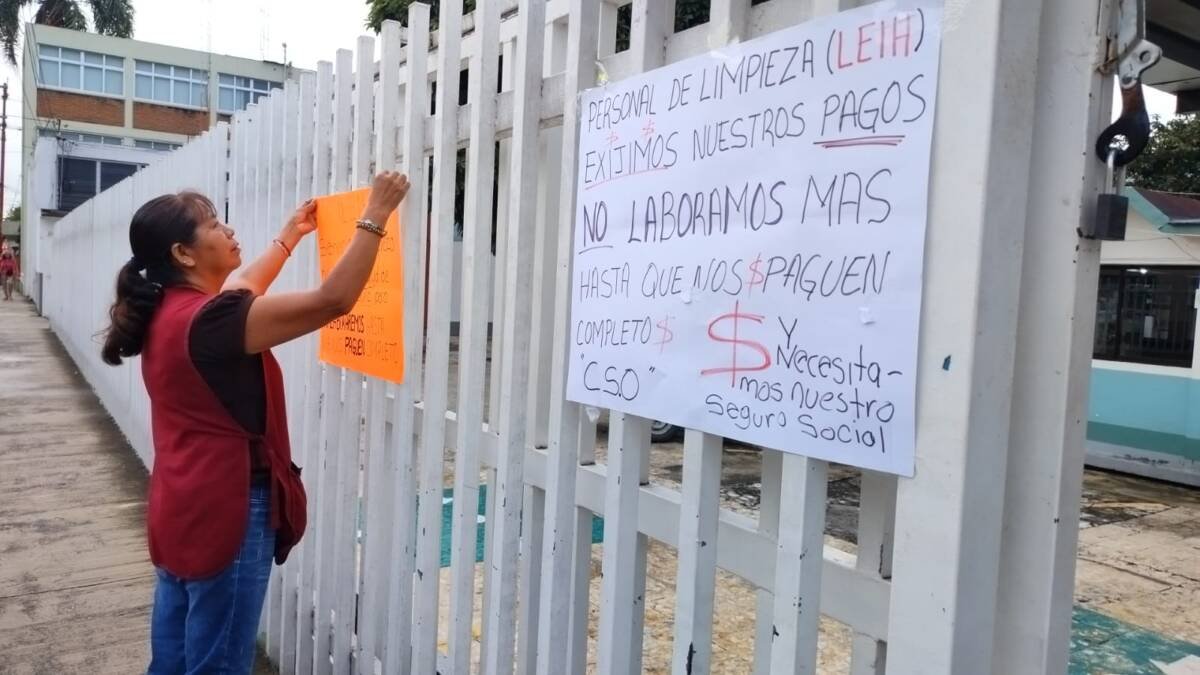 PERSONAL DE LIMPIEZA (LEIH)
EXIJIMOS NUESTROS PAGOS
NO LABORAMOS MAS
HASTA QUE NOS $PAGUEN
COMPLETO $ $ Y
"C.S.O" Necesita-
mos nuestro
Seguro Social
HASTA
PAGUEN